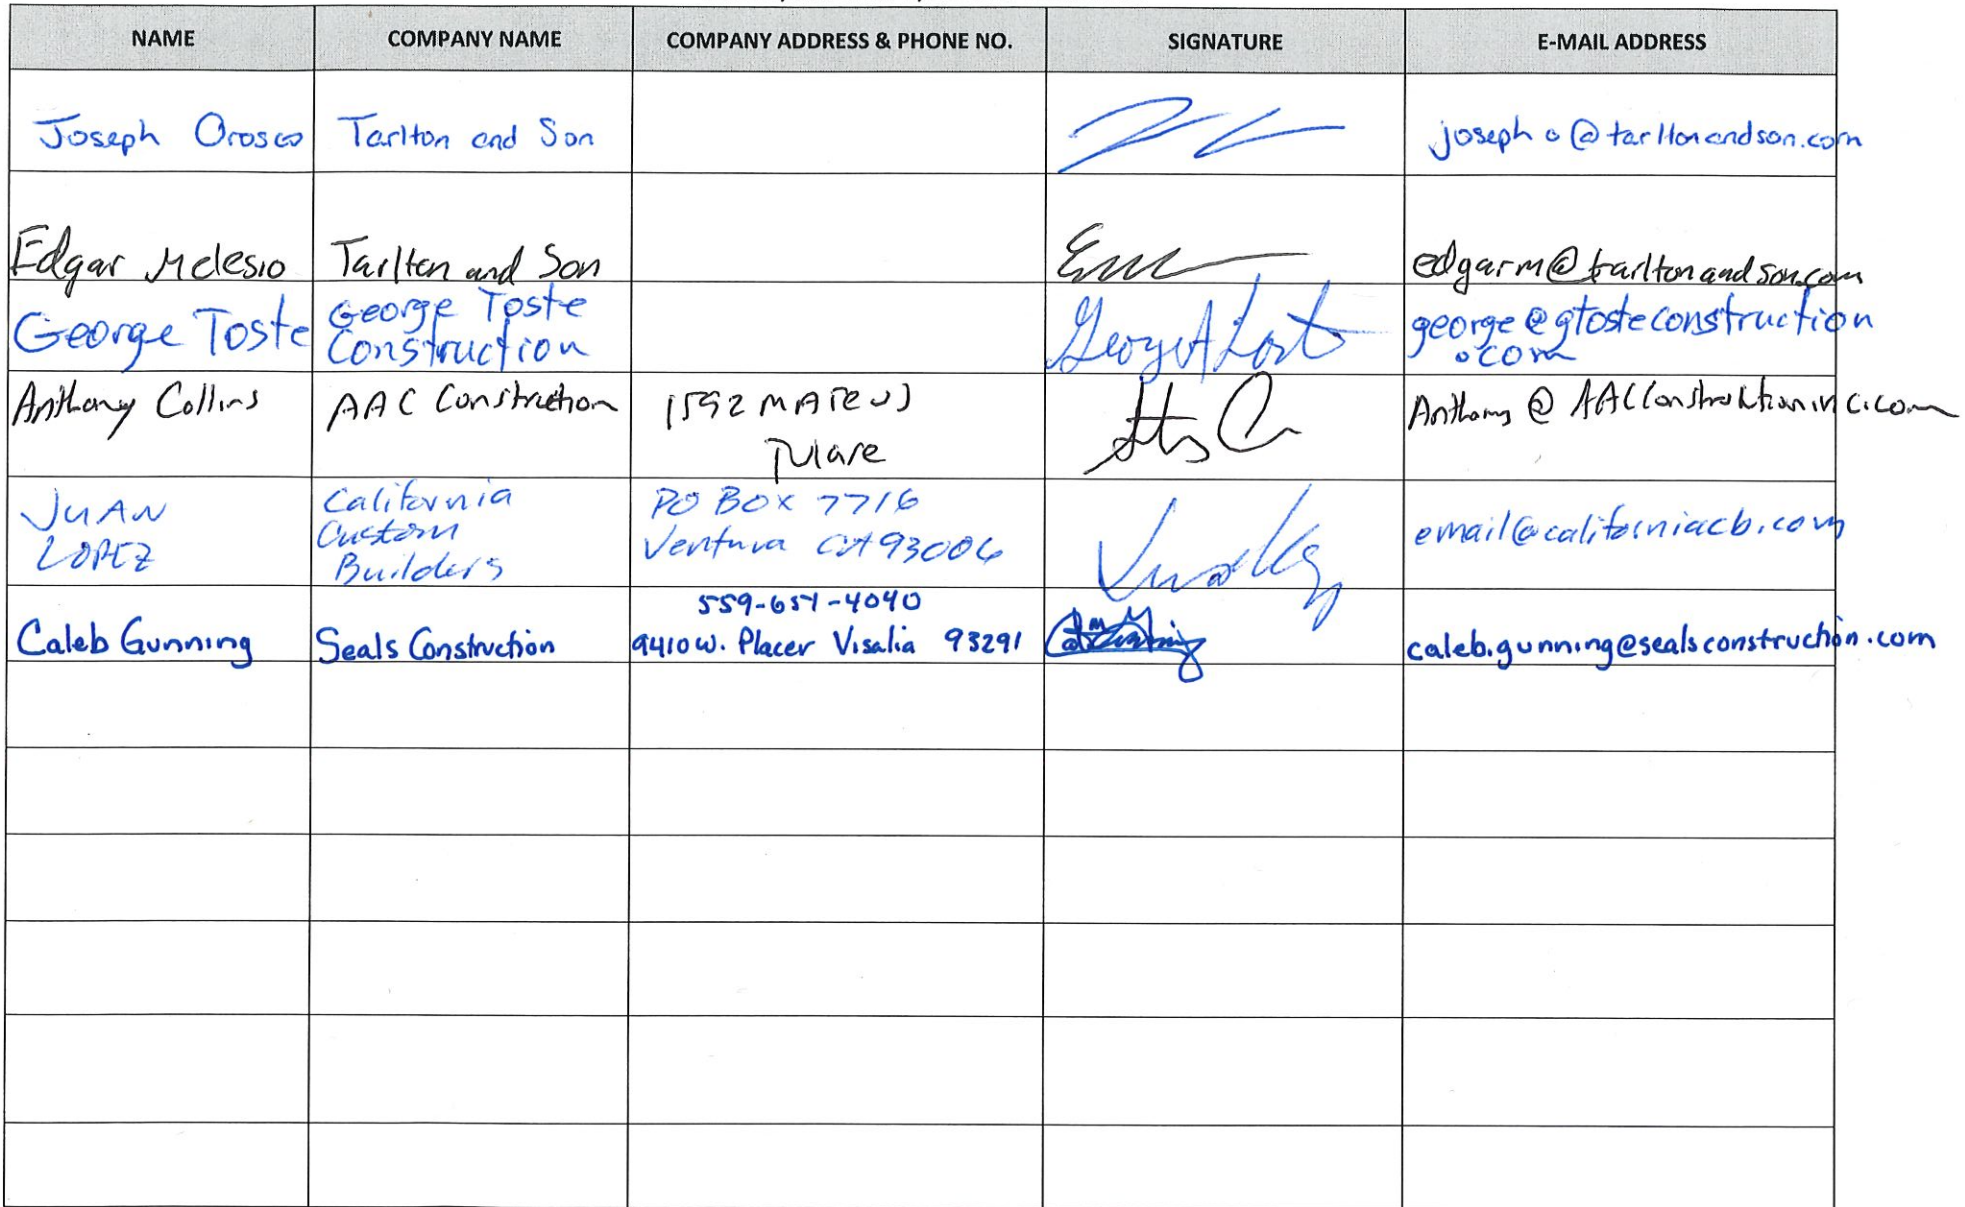 NAME COMPANY NAME COMPANY ADDRESS & PHONE NO. SIGNATURE E-MAIL ADDRESS
Joseph Orosco Tarlton and Son josepho@tarltonandson.com
Edgar Melesio Tarlton and Son edgarm@tarltonandson.com
George Toste George Toste
Construction george@gtosteconstruction
.com
Anthony Collins AAC Construction 1592 MATEUS
Tulare Anthony@AACConstructioninc.com
JUAN
LOPEZ California
Custom
Builders PO BOX 7716
Ventura CA 93006 email@californiacb.com
Caleb Gunning Seals Construction 559-651-4040
9410 W. Placer Visalia 93291 caleb.gunning@sealsconstruction.com